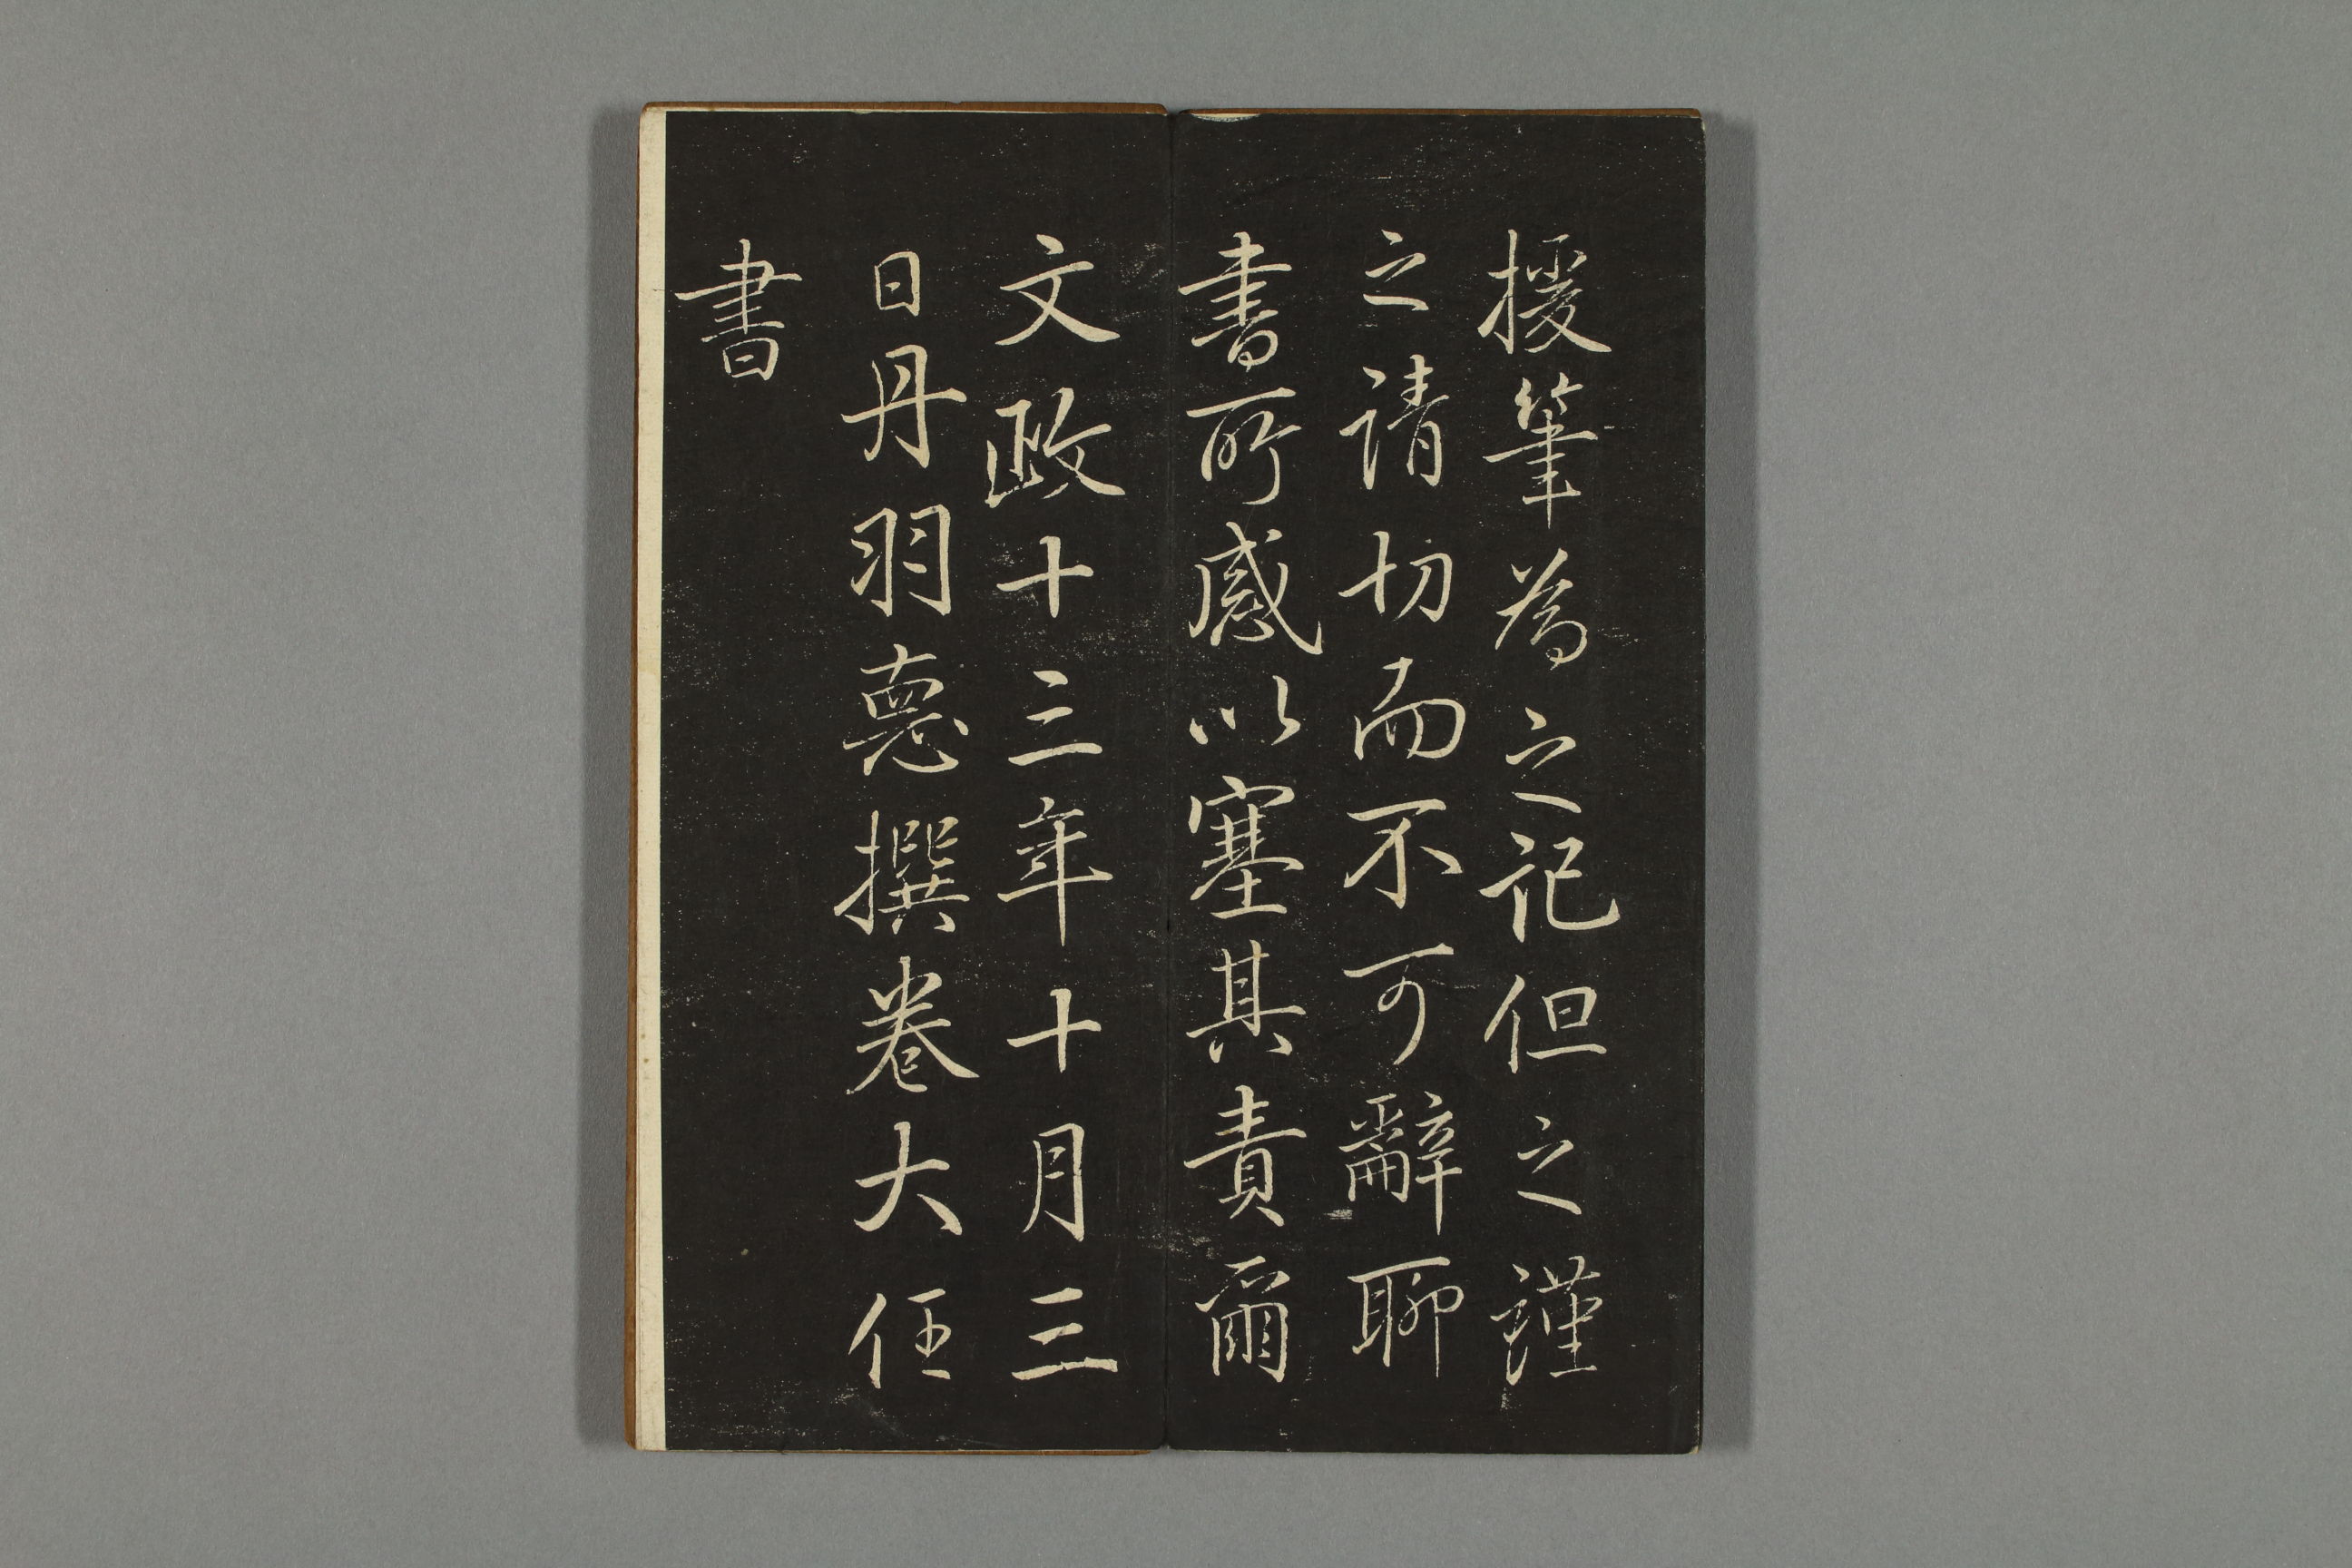 援筆為之記但之謹
之請切而不可辭聊
書所感以塞其責爾
文政十三年十月三
日丹羽悳撰卷大任
書